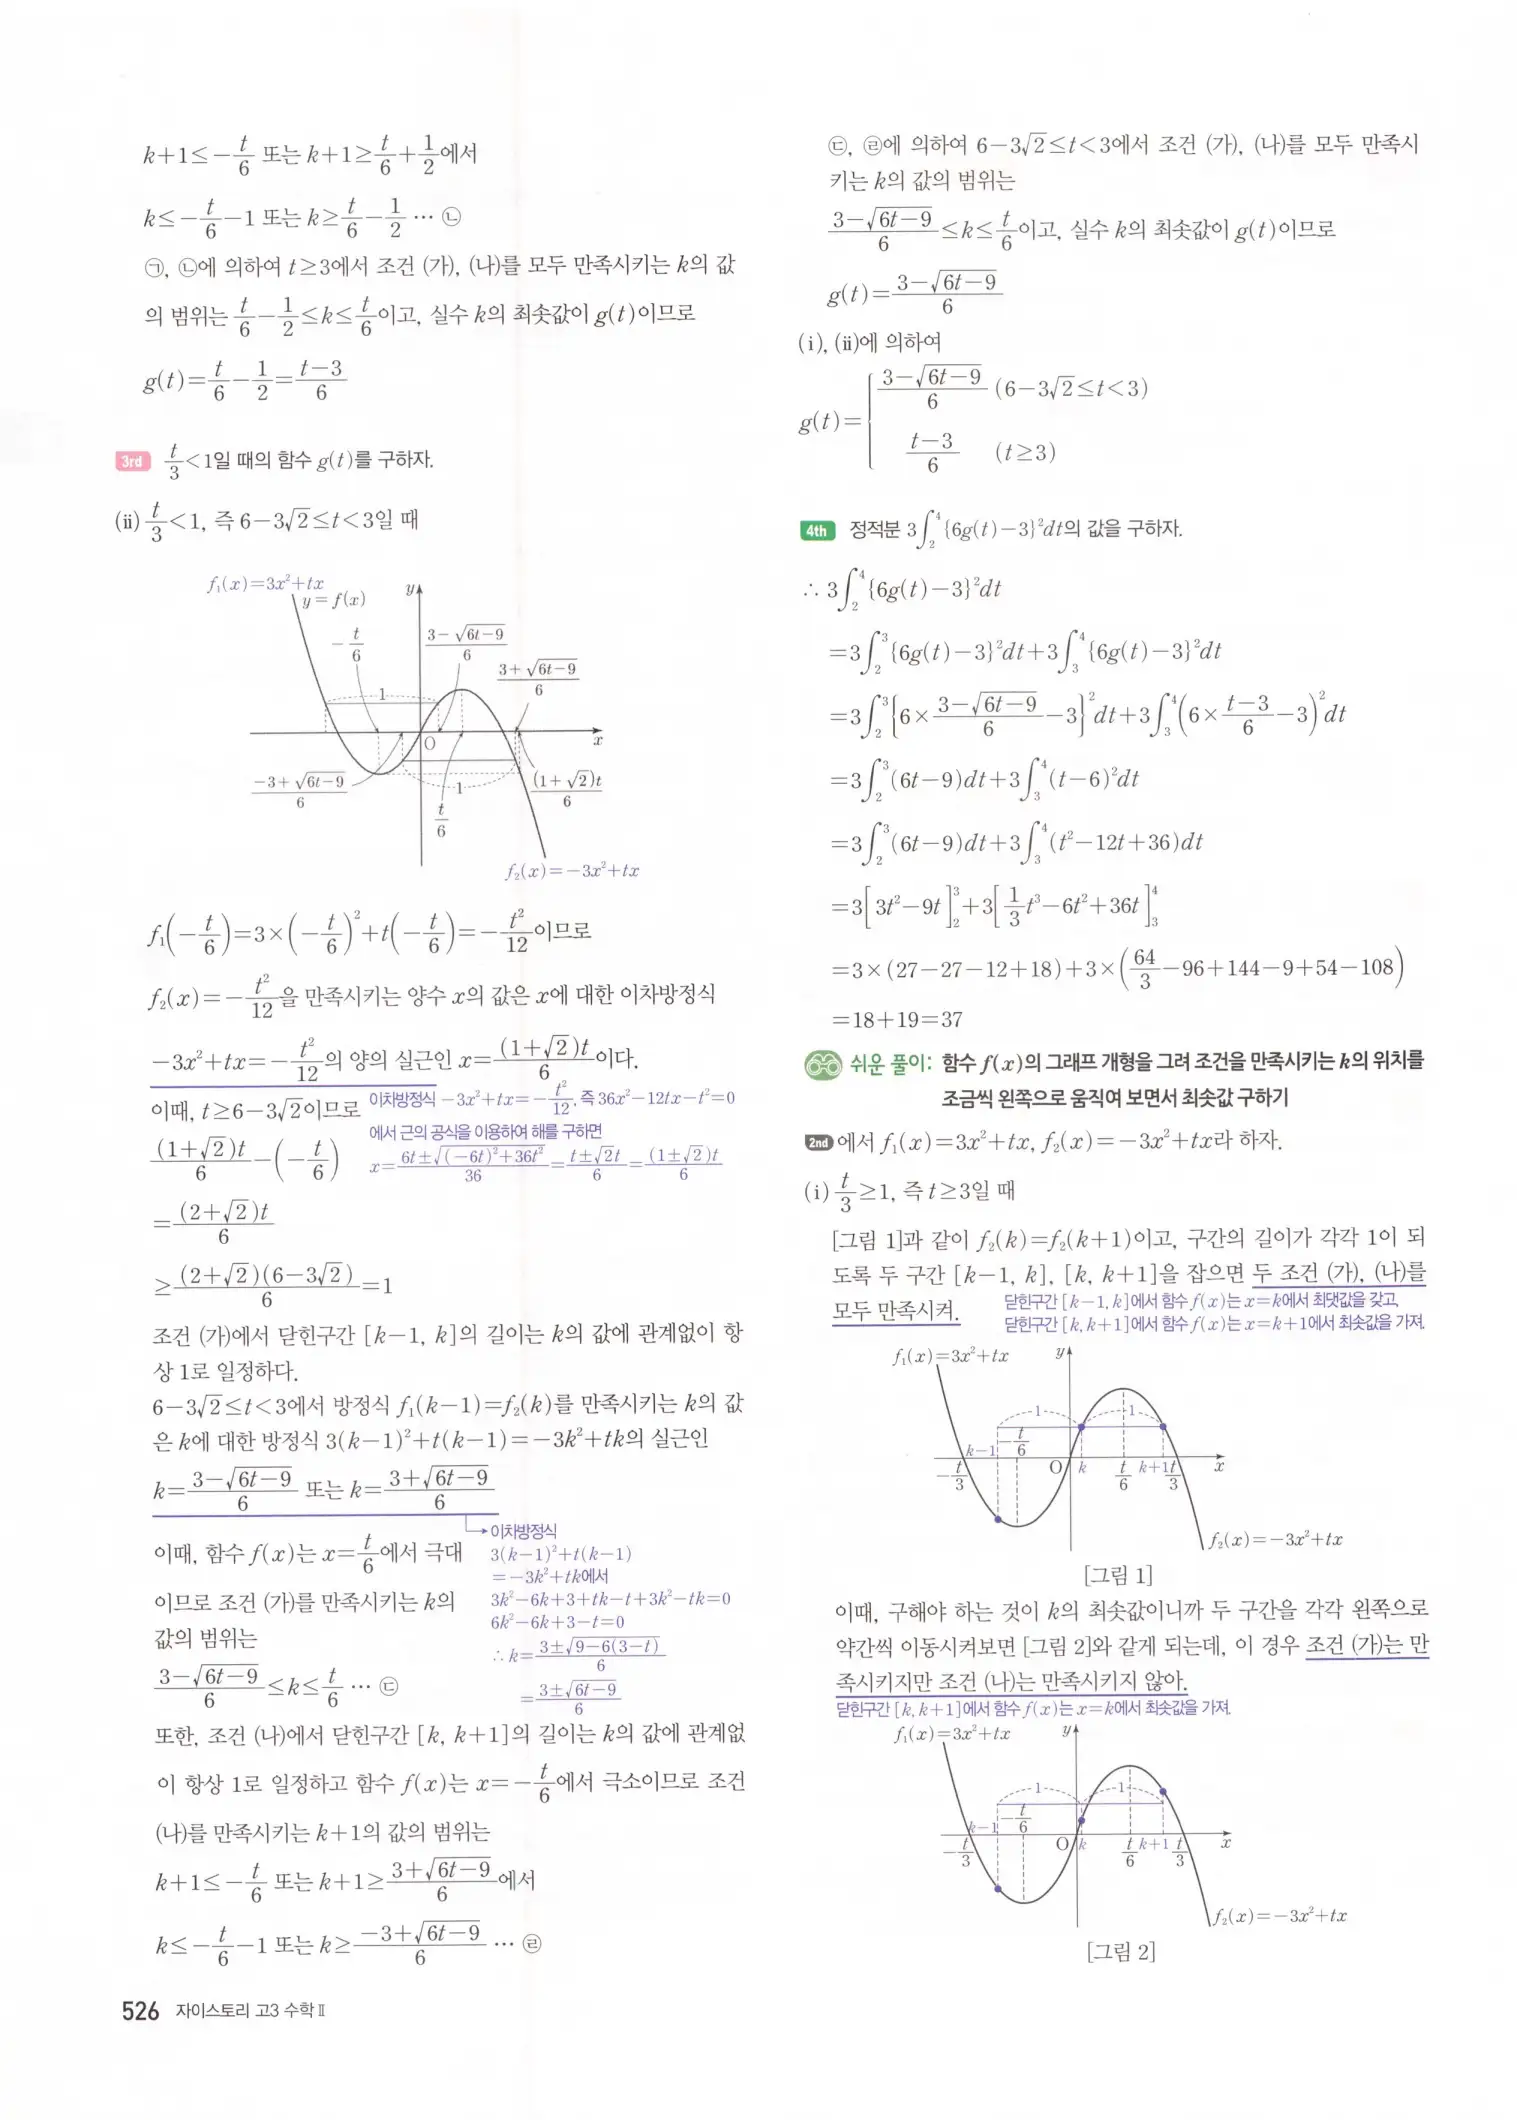 k+1≤-t/6 또는 k+1≥t/6+1/2에서
k≤-t/6-1 또는 k≥t/6-1/2 … ㉡
㉠, ㉡에 의하여 t≥3에서 조건 (가), (나)를 모두 만족시키는 k의 값
의 범위는 t/6-1/2≤k≤t/6이고, 실수 k의 최솟값이 g(t)이므로
g(t)=t/6-1/2=(t-3)/6
3rd t/3<1일 때의 함수 g(t)를 구하자.
(ⅱ) t/3<1, 즉 6-3√2≤t<3일 때
f₁(x)=3x²+tx
y=f(x)
y
-t/6
(3-√(6t-9))/6
(3+√(6t-9))/6
1
O
x
(-3+√(6t-9))/6
1
t/6
(1+√2)t/6
f₂(x)=-3x²+tx
f₁(-t/6)=3×(-t/6)²+t(-t/6)=-t²/12이므로
f₂(x)=-t²/12을 만족시키는 양수 x의 값은 x에 대한 이차방정식
-3x²+tx=-t²/12의 양의 실근인 x=(1+√2)t/6이다.
이때, t≥6-3√2이므로
이차방정식 -3x²+tx=-t²/12, 즉 36x²-12tx-t²=0
에서 근의 공식을 이용하여 해를 구하면
x=(6t±√((-6t)²+36t²))/36=(t±√2t)/6=(1±√2)t/6
(1+√2)t/6-(-t/6)
=(2+√2)t/6
≥(2+√2)(6-3√2)/6=1
조건 (가)에서 닫힌구간 [k-1, k]의 길이는 k의 값에 관계없이 항
상 1로 일정하다.
6-3√2≤t<3에서 방정식 f₁(k-1)=f₂(k)를 만족시키는 k의 값
은 k에 대한 방정식 3(k-1)²+t(k-1)=-3k²+tk의 실근인
k=(3-√(6t-9))/6 또는 k=(3+√(6t-9))/6
이때, 함수 f(x)는 x=t/6에서 극대
이므로 조건 (가)를 만족시키는 k의
값의 범위는
(3-√(6t-9))/6≤k≤t/6 … ㉢
이차방정식
3(k-1)²+t(k-1)
=-3k²+tk에서
3k²-6k+3+tk-t+3k²-tk=0
6k²-6k+3-t=0
∴ k=(3±√(9-6(3-t)))/6
=(3±√(6t-9))/6
또한, 조건 (나)에서 닫힌구간 [k, k+1]의 길이는 k의 값에 관계없
이 항상 1로 일정하고 함수 f(x)는 x=-t/6에서 극소이므로 조건
(나)를 만족시키는 k+1의 값의 범위는
k+1≤-t/6 또는 k+1≥(3+√(6t-9))/6에서
k≤-t/6-1 또는 k≥(-3+√(6t-9))/6 … ㉣
526 자이스토리 고3 수학Ⅱ
㉢, ㉣에 의하여 6-3√2≤t<3에서 조건 (가), (나)를 모두 만족시
키는 k의 값의 범위는
(3-√(6t-9))/6≤k≤t/6이고, 실수 k의 최솟값이 g(t)이므로
g(t)=(3-√(6t-9))/6
(ⅰ), (ⅱ)에 의하여
g(t)={ (3-√(6t-9))/6 (6-3√2≤t<3)
(t-3)/6 (t≥3)
4th 정적분 3∫₂⁴{6g(t)-3}²dt의 값을 구하자.
∴ 3∫₂⁴{6g(t)-3}²dt
=3∫₂³{6g(t)-3}²dt+3∫₃⁴{6g(t)-3}²dt
=3∫₂³{6×(3-√(6t-9))/6-3}²dt+3∫₃⁴(6×(t-3)/6-3)²dt
=3∫₂³(6t-9)dt+3∫₃⁴(t-6)²dt
=3∫₂³(6t-9)dt+3∫₃⁴(t²-12t+36)dt
=3[3t²-9t]₂³+3[1/3t³-6t²+36t]₃⁴
=3×(27-27-12+18)+3×(64/3-96+144-9+54-108)
=18+19=37
쉬운 풀이: 함수 f(x)의 그래프 개형을 그려 조건을 만족시키는 k의 위치를
조금씩 왼쪽으로 움직여 보면서 최솟값 구하기
2nd에서 f₁(x)=3x²+tx, f₂(x)=-3x²+tx라 하자.
(ⅰ) t/3≥1, 즉 t≥3일 때
[그림 1]과 같이 f₂(k)=f₂(k+1)이고, 구간의 길이가 각각 1이 되
도록 두 구간 [k-1, k], [k, k+1]을 잡으면 두 조건 (가), (나)를
모두 만족시켜.
닫힌구간 [k-1, k]에서 함수 f(x)는 x=k에서 최댓값을 갖고,
닫힌구간 [k, k+1]에서 함수 f(x)는 x=k+1에서 최솟값을 가져.
f₁(x)=3x²+tx
y
1
1
k-1
-t/6
-t/3
O
k
t/6
k+1
t/3
x
f₂(x)=-3x²+tx
[그림 1]
이때, 구해야 하는 것이 k의 최솟값이니까 두 구간을 각각 왼쪽으로
약간씩 이동시켜보면 [그림 2]와 같게 되는데, 이 경우 조건 (가)는 만
족시키지만 조건 (나)는 만족시키지 않아.
닫힌구간 [k, k+1]에서 함수 f(x)는 x=k에서 최솟값을 가져.
f₁(x)=3x²+tx
y
1
1
k-1
-t/6
-t/3
O
k
t/6
k+1
t/3
x
f₂(x)=-3x²+tx
[그림 2]